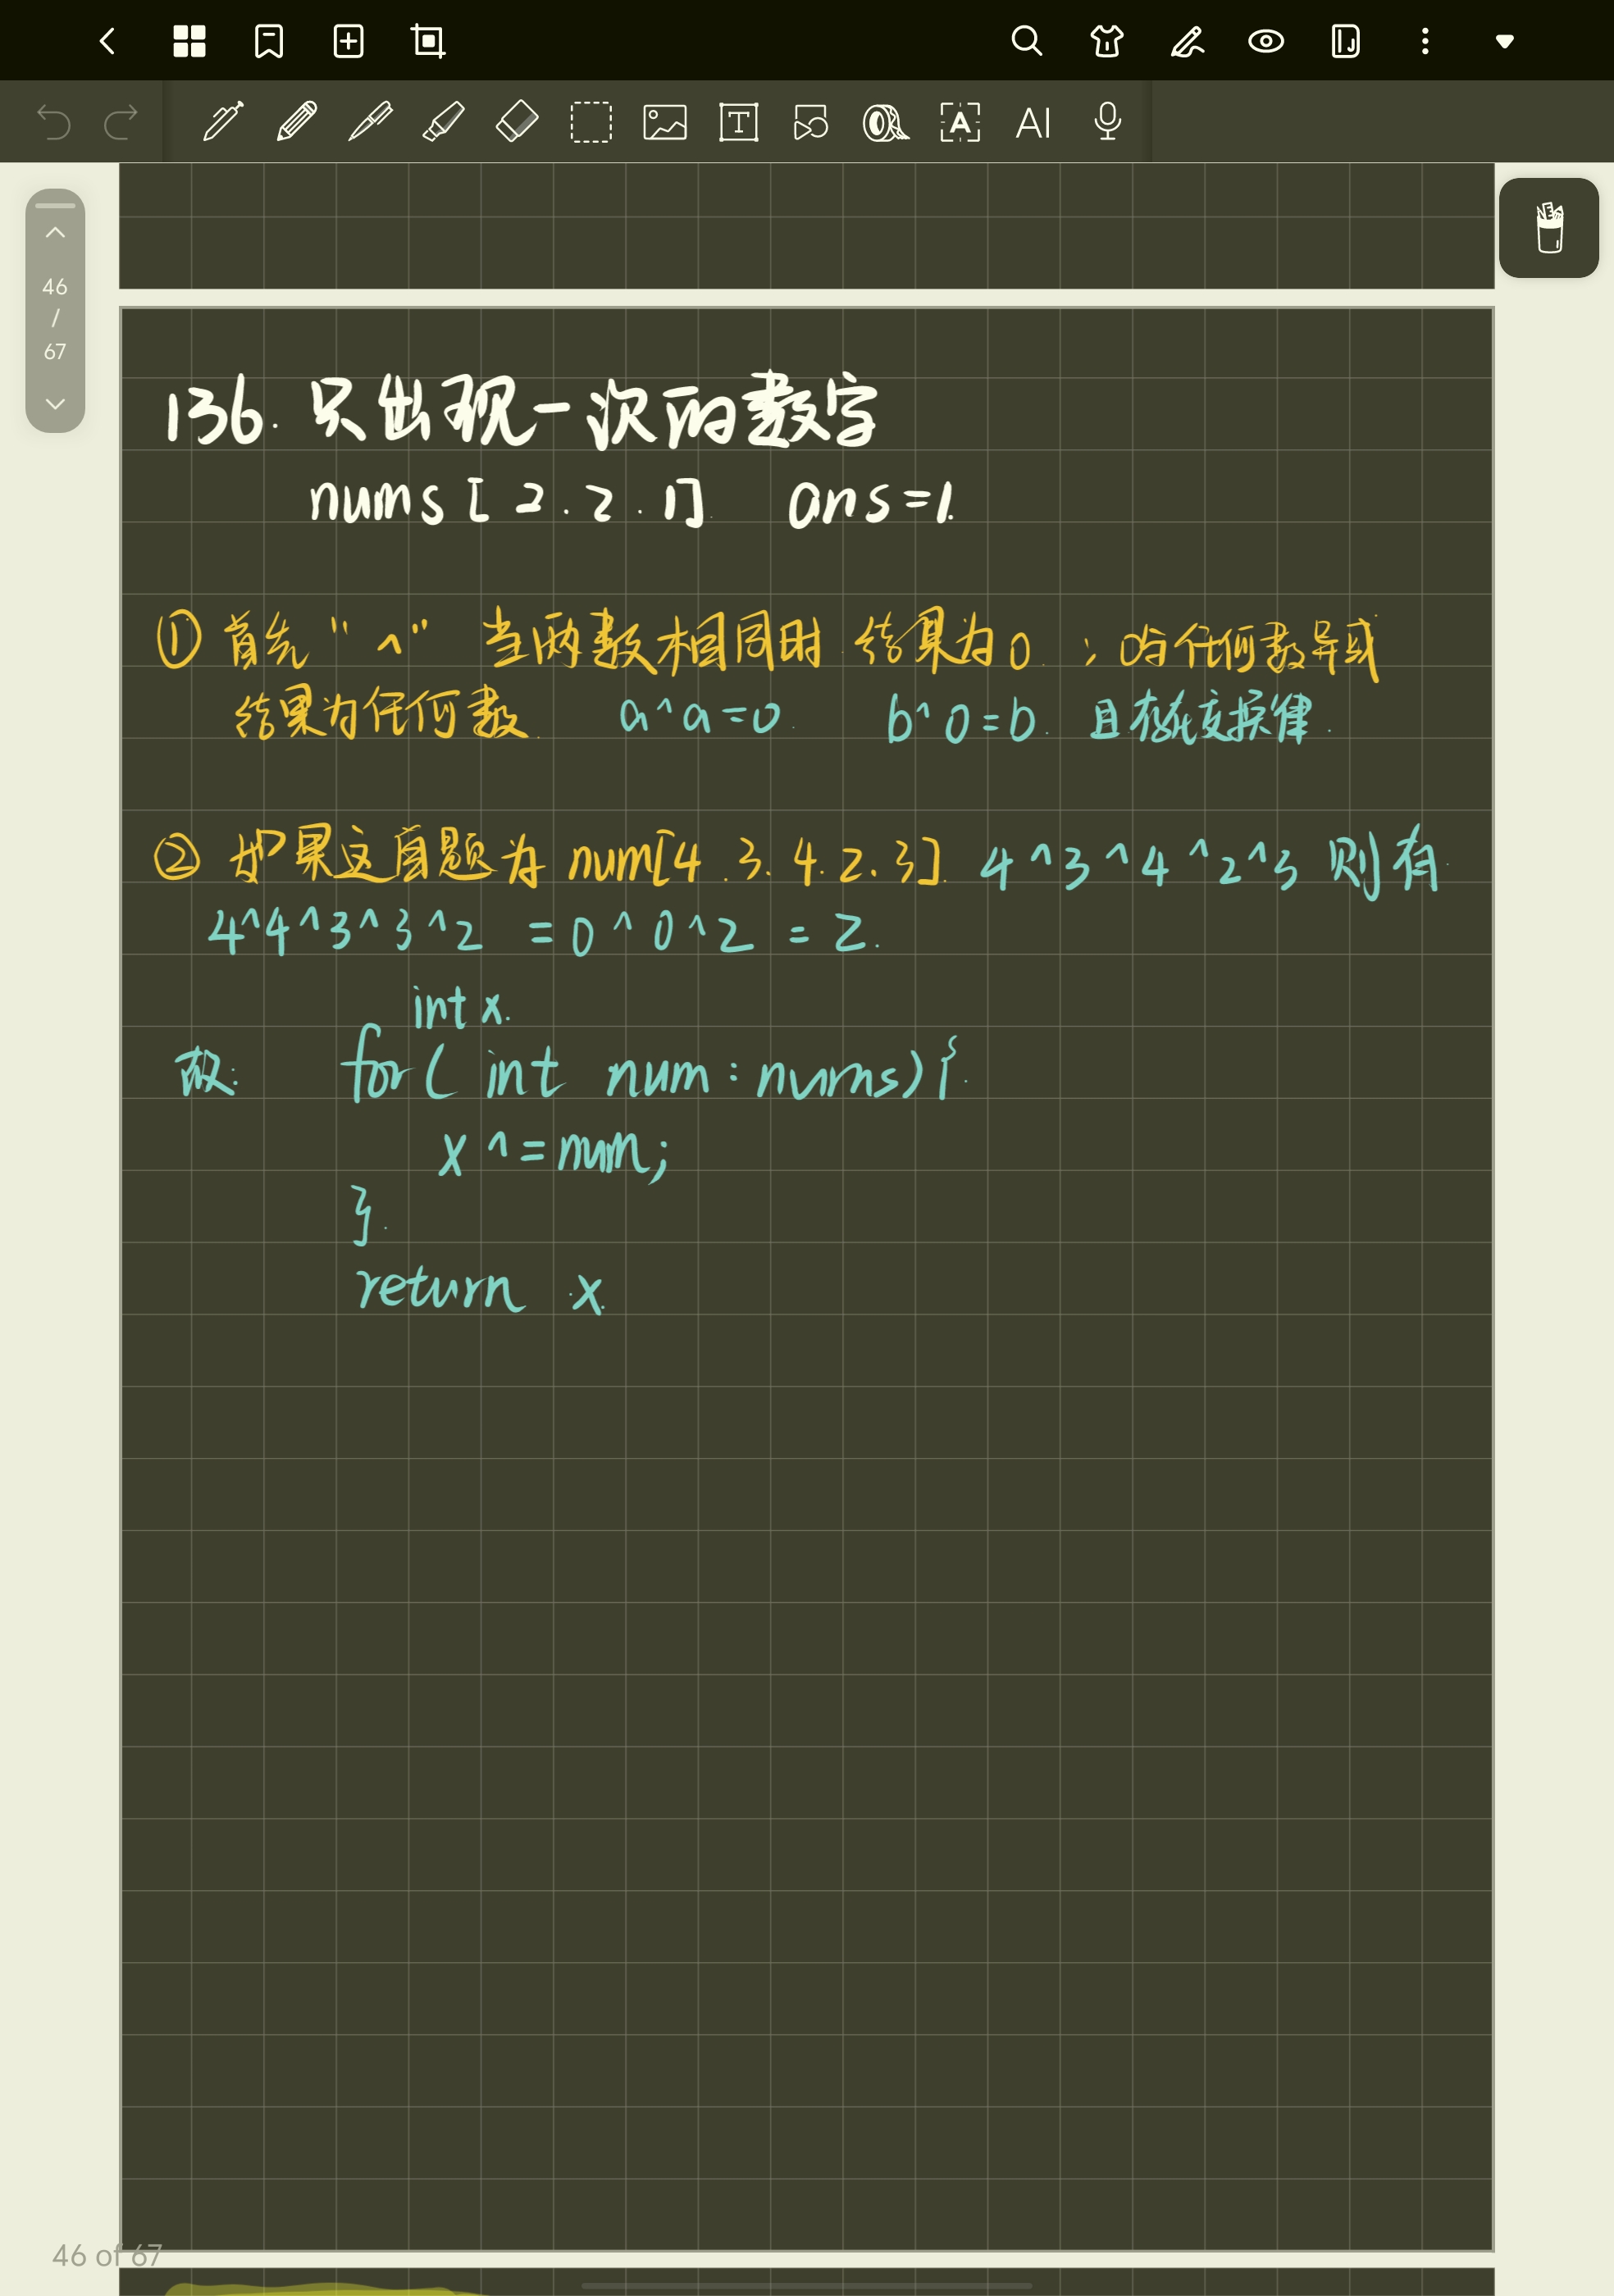 46
/
67
136. 只出现一次的数字
nums [ 2 . 2 . 1 ] ans = 1.
① 首先 " ^ " 当两数相同时 结果为 0 ; 0与任何数异或
结果为任何数. a^a=0. b^0=b. 且存在交换律.
② 如果这道题为 num[4.3.4.2.3]. 4^3^4^2^3 则有
4^4^3^3^2 = 0^0^2 = 2.
int x.
故: for( int num : nums) {
x ^= num;
}.
return x
46 of 67